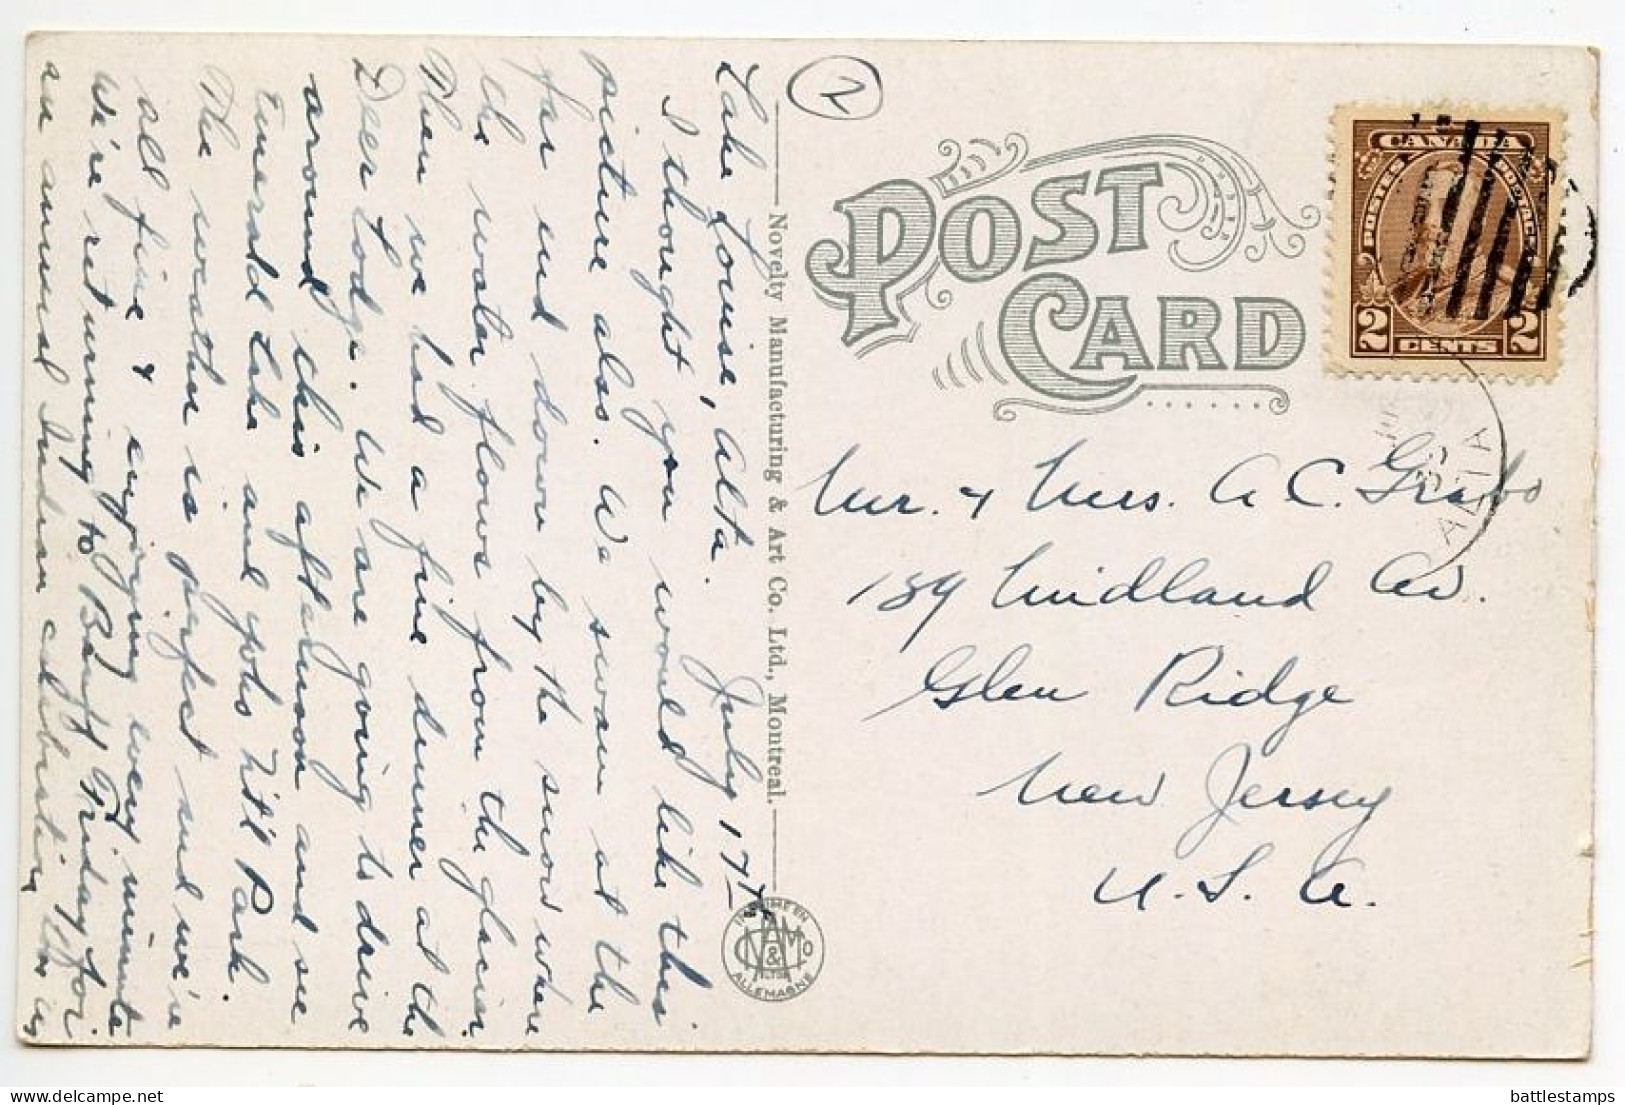 2
Lake Louise, Alta. July 17th
I thought you would like this
picture also. We swam at the
far end down by the shore where
the water flows from the glacier.
Then we had a fine dinner at the
Deer Lodge. We are going to drive
around this afternoon and see
Emerald Lake and Yoho Nat'l Park.
The weather is perfect and we're
all fine & enjoying every minute
We're returning to Banff Friday for
an annual Indian celebration.
Novelty Manufacturing & Art Co. Ltd., Montreal.
IMPRIME EN
ALLEMAGNE
POST
CARD
CANADA
POSTES POSTAGE
2 CENTS 2
ALTA
Mr. & Mrs. A C. Grabo
189 Midland Av.
Glen Ridge
New Jersey
U. S. A.
delcampe.net
battlestamps